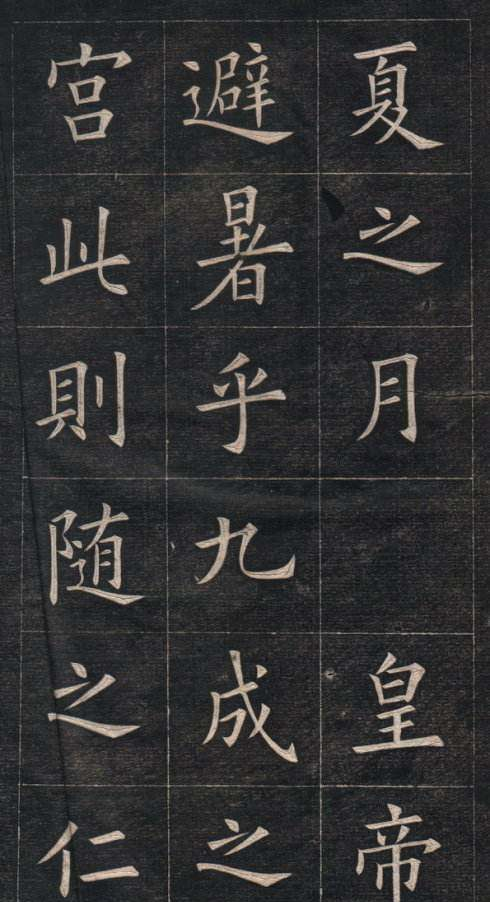 夏之月皇帝
避暑乎九成之
宫此則随之仁